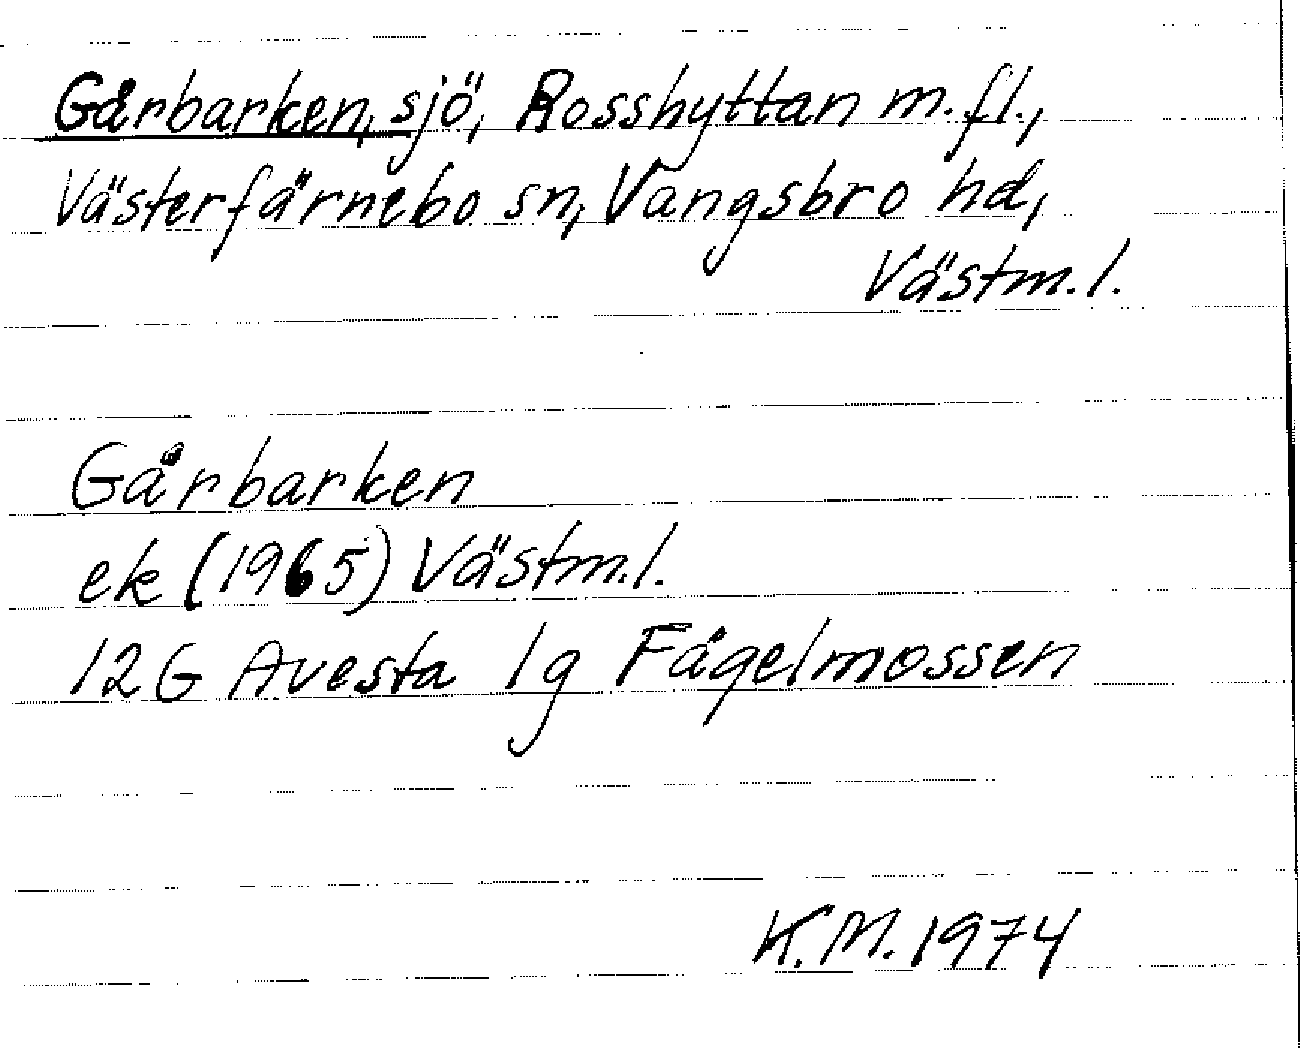 Gårbarken, sjö, Rosshyttan m.fl.,
Västerfärnebo sn, Vangsbro hd,
Västm.l.
Gårbarken
ek (1965) Västm.l.
12G Avesta 1g Fågelmossen
K.M. 1974